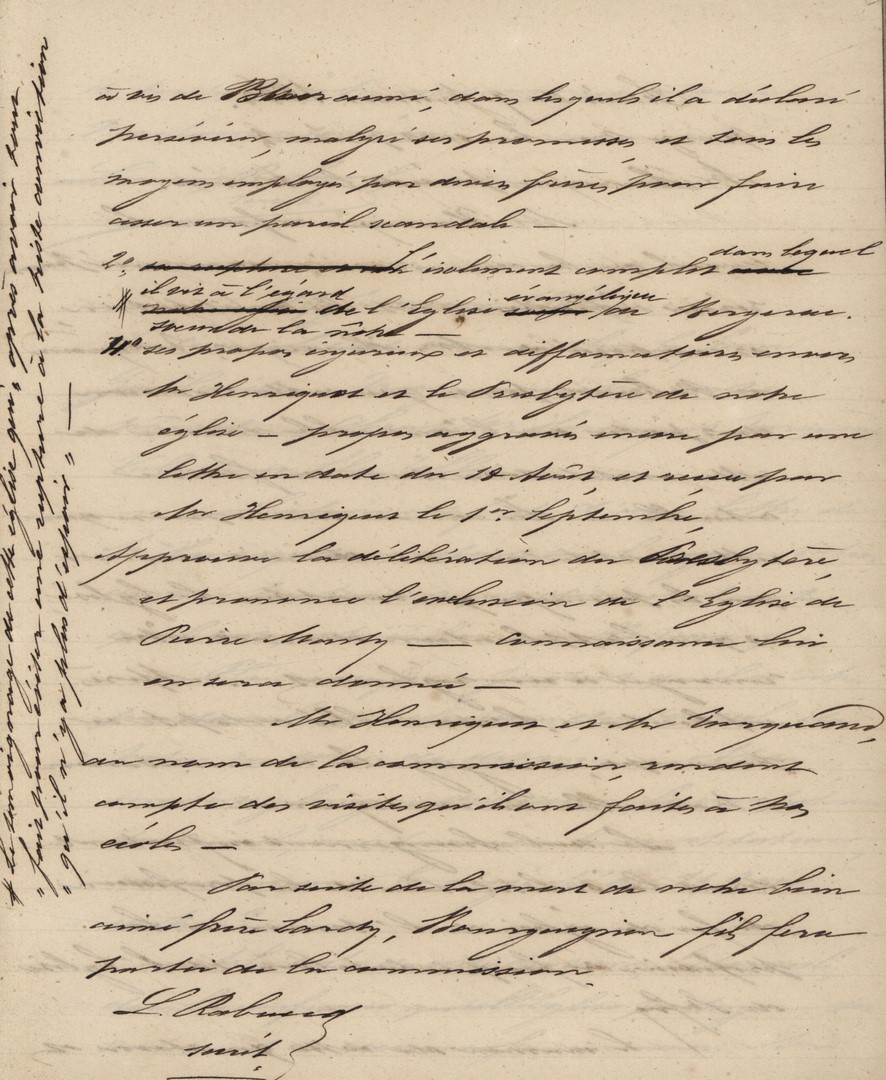 à vis de Blaireaimé, dans lesquels il a déclaré
persévérer, malgré ses promesses et tous les
moyens employés par divers frères, pour faire
cesser un pareil scandale —
2°. L'isolement complet dans lequel
il vit à l'égard
de l'Eglise évangélique de Bergerac.
soeur de la nôtre —
4° ses propos injurieux et diffamatoires envers
Mr Henriquet et le Presbytère de notre
église — propos aggravés encore par une
lettre en date du 18 Août, et reçue par
Mr Henriquet le 1er Septembre,
Approuve la délibération du Presbytère,
et prononce l'exclusion de l'Eglise de
Pierre Marty — connaissance lui
en sera donnée —
Mr Henriquet et Mr
au nom de la commission, rendent
compte des visites qu'ils ont faites à nos
écoles —
Par suite de la mort de notre bien
aimé frère Lardy, Bourguignon fils fera
partie de la commission
L. Rabaud
secrét.
* Le témoignage de cette église qui, "après avoir tout
"fait pour éviter une rupture a la triste conviction
"qu'il n'y a plus d'espoir" —